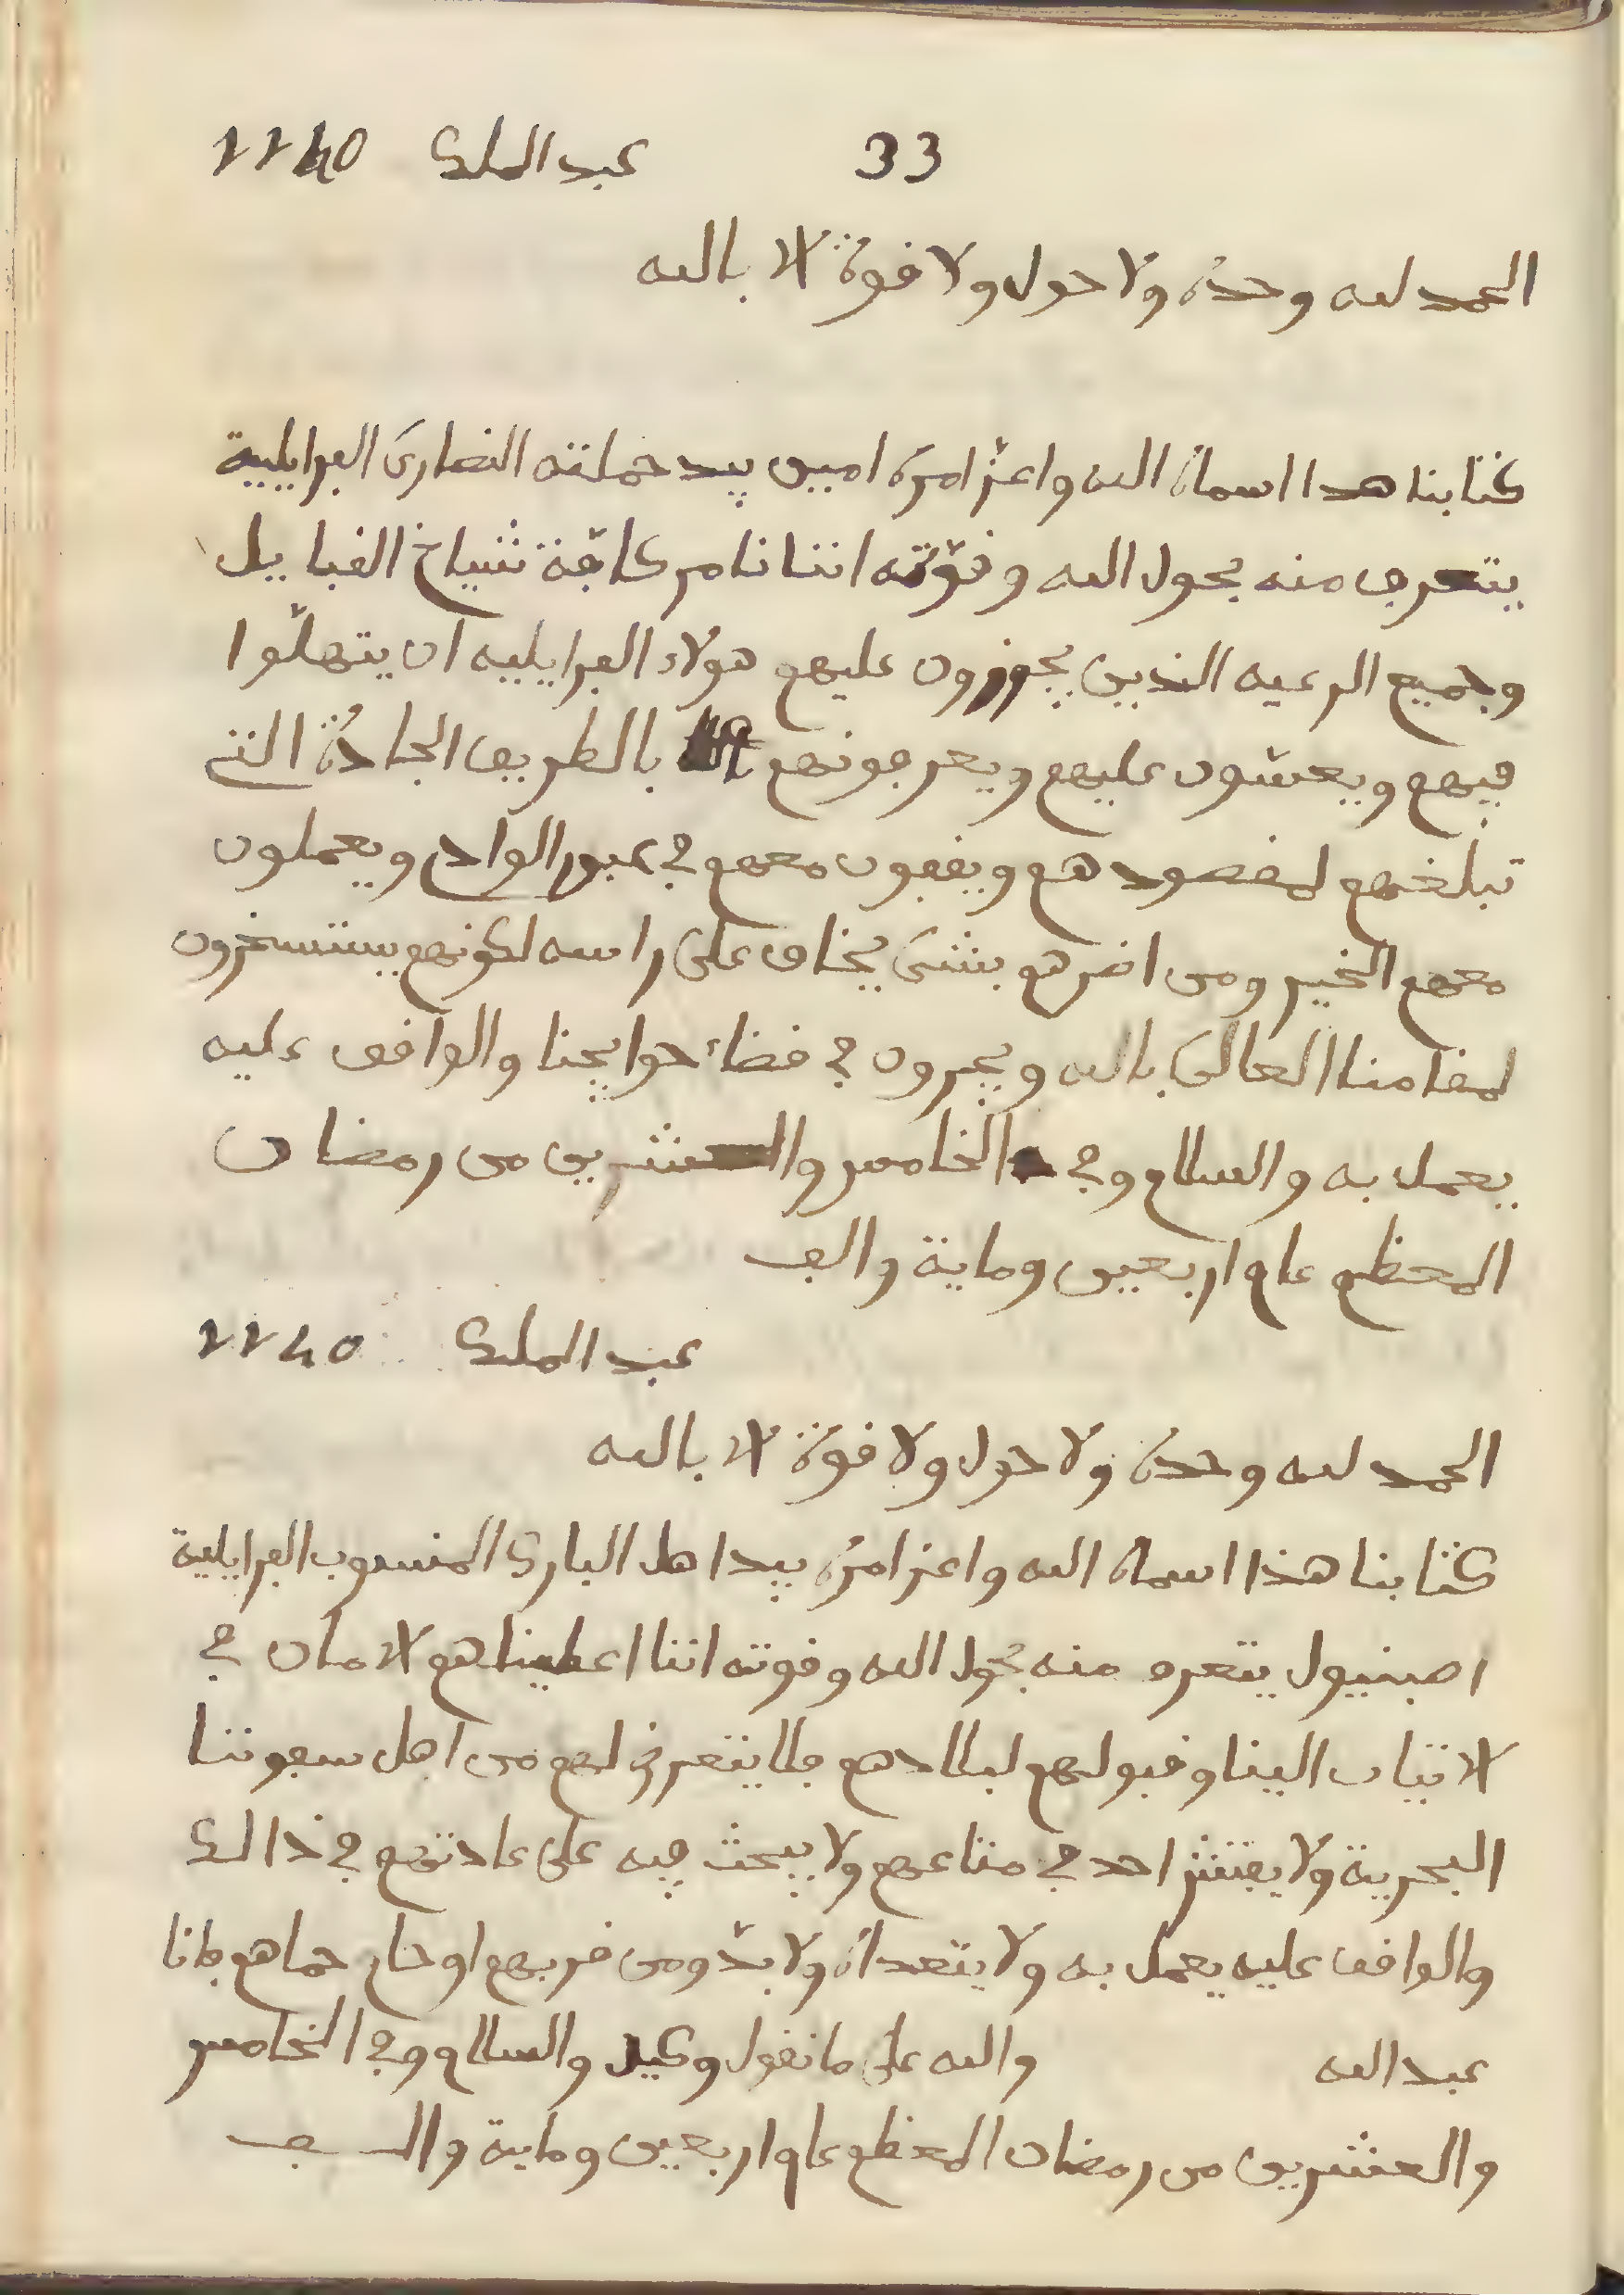 33 عبد الملك 1140
الحمد لله وحده ولا حول ولا قوة الا بالله
كتابنا هدا اسماه الله واعز امره امين بيد حملته النصارى الفرايلية
يتعرف منه بحول الله وقوته اننا نامر كافة شياخ القبايل
وجميع الرعيه الذين يجوزون عليهم هولاء الفرايليه ان يتهلوا
فيهم ويعسون عليهم ويعرفونهم بالطريق الجادة التي
تبلغهم لمقصودهم ويقفون معهم في عبور الواد ويعملون
معهم الخير ومن اضرهم بشئ يخاف على راسه لكونهم يستسخرون
لمقامنا العالى بالله ويجرون في قضاء حوايجنا والواقف عليه
يعمل به والسلام وفي الخامس والعشرين من رمضان
المعظم عام اربعين وماية والف
عبد الملك 1140
الحمد لله وحده ولا حول ولا قوة الا بالله
كتابنا هذا اسماه الله واعز امره بيد اهل البارك المنسوب الفرايلية
اصبنيول يتعرف منه بحول الله وقوته اننا اعطيناهم الامان في
الاتيان الينا وقبولهم لبلادهم فلا يتعرض لهم من اهل سفوننا
البحرية ولا يفتش احد في متاعهم ولا يبحث فيه على عادتهم في ذالك
والواقف عليه يعمل به ولا يتعداه ولا بد ومن قربهم او حام حماهم فانا
عبد الله والله على ما نقول وكيل والسلام وفي الخامس
والعشرين من رمضان المعظم عام اربعين وماية والف